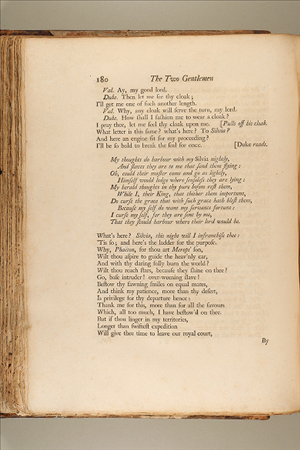 180 The Two Gentlemen
Val. Ay, my good lord.
Duke. Then let me see thy cloak;
I'll get me one of such another length.
Val. Why, any cloak will serve the turn, my lord.
Duke. How shall I fashion me to wear a cloak?
I pray thee, let me feel thy cloak upon me. [Pulls off his cloak.
What letter is this same? what's here? To Silvia?
And here an engine fit for my proceeding?
I'll be so bold to break the seal for once. [Duke reads.
My thoughts do harbour with my Silvia nightly,
And slaves they are to me that send them flying:
Oh, could their master come and go as lightly,
Himself would lodge where senseless they are lying:
My herald thoughts in thy pure bosom rest them,
While I, their King, that thither them importune,
Do curse the grace that with such grace hath blest them,
Because my self do want my servants fortune:
I curse my self, for they are sent by me,
That they should harbour where their lord would be.
What's here? Silvia, this night will I infranchise thee:
'Tis so; and here's the ladder for the purpose.
Why, Phaeton, for thou art Merops' son,
Wilt thou aspire to guide the heav'nly car,
And with thy daring folly burn the world?
Wilt thou reach stars, because they shine on thee?
Go, base intruder! over-weening slave!
Bestow thy fawning smiles on equal mates,
And think my patience, more than thy desert,
Is privilege for thy departure hence:
Thank me for this, more than for all the favours
Which, all too much, I have bestow'd on thee.
But if thou linger in my territories,
Longer than swiftest expedition
Will give thee time to leave our royal court,
By